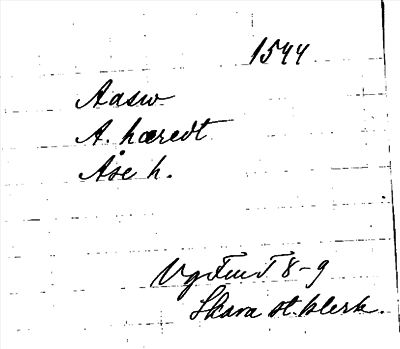 1544
Aasw
A. hæredt
Åse h.
Vg FmT 8-9
Skara st. klerk.